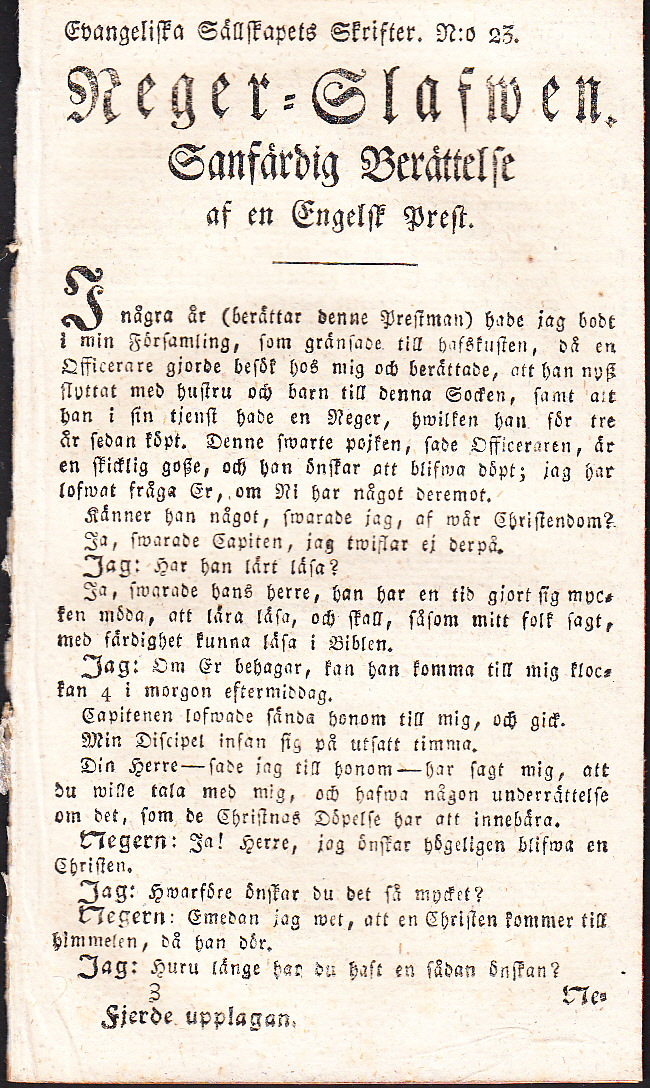 Evangeliska Sällskapets Skrifter. N:o 23.
Neger-Slafwen.
Sanfärdig Berättelse
af en Engelsk Prest.
I några år (berättar denne Prestman) hade jag bodt
i min Församling, som gränsade till hafskusten, då en
Officerare gjorde besök hos mig och berättade, att han nyß
flyttat med hustru och barn till denna Socken, samt att
han i sin tjenst hade en Neger, hwilken han för tre
år sedan köpt. Denne swarte pojken, sade Officeraren, är
en skicklig goße, och han önskar att blifwa döpt; jag har
lofwat fråga Er, om Ni har något deremot.
Känner han något, swarade jag, af wår Christendom?
Ja, swarade Capiten, jag twiflar ej derpå.
Jag: Har han lärt läsa?
Ja, swarade hans herre, han har en tid gjort sig myc-
ken möda, att lära läsa, och skall, såsom mitt folk sagt,
med färdighet kunna läsa i Biblen.
Jag: Om Er behagar, kan han komma till mig kloc-
kan 4 i morgon eftermiddag.
Capitenen lofwade sända honom till mig, och gick.
Min Discipel infan sig på utsatt timma.
Din Herre—sade jag till honom—har sagt mig, att
du wille tala med mig, och hafwa någon underrättelse
om det, som de Christnas Döpelse har att innebära.
Negern: Ja! Herre, jag önskar högeligen blifwa en
Christen.
Jag: Hwarföre önskar du det så mycket?
Negern: Emedan jag wet, att en Christen kommer till
himmelen, då han dör.
Jag: Huru länge har du haft en sådan önskan?
3 Ne-
Fjerde upplagan.